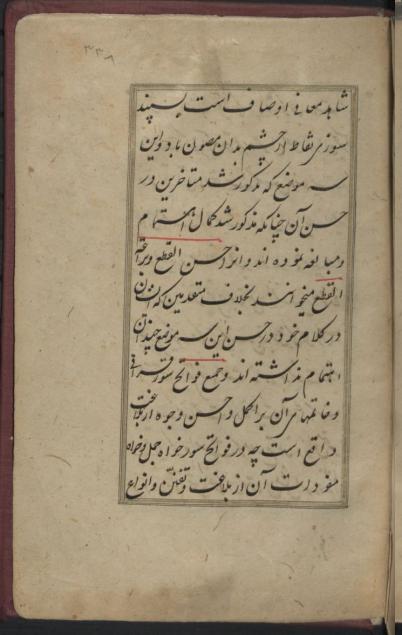 ۳۳۸
شاهد معانی اوصاف است بسپند
سوزی نقاط از چشم بدان مصون باد و این
سه موضع که مذکور شد متاخرین در
حسن آن چنانکه مذکور شد کمال اهتمام
و مبالغه نموده اند و انرا حسن القطع و براعة
القطع میخوانند بخلاف متقدمین که ایشان
در کلام خود در حسن این سه موضع چندان
اهتمام نداشته اند و جمیع فواتح سور قرانی
و خاتمهای آن بر اکمل و احسن وجوه از بلاغت
واقع است چه در فواتح سور خواه جمل و خواه
مفردات آن از بلاغت و تفنن و انواع